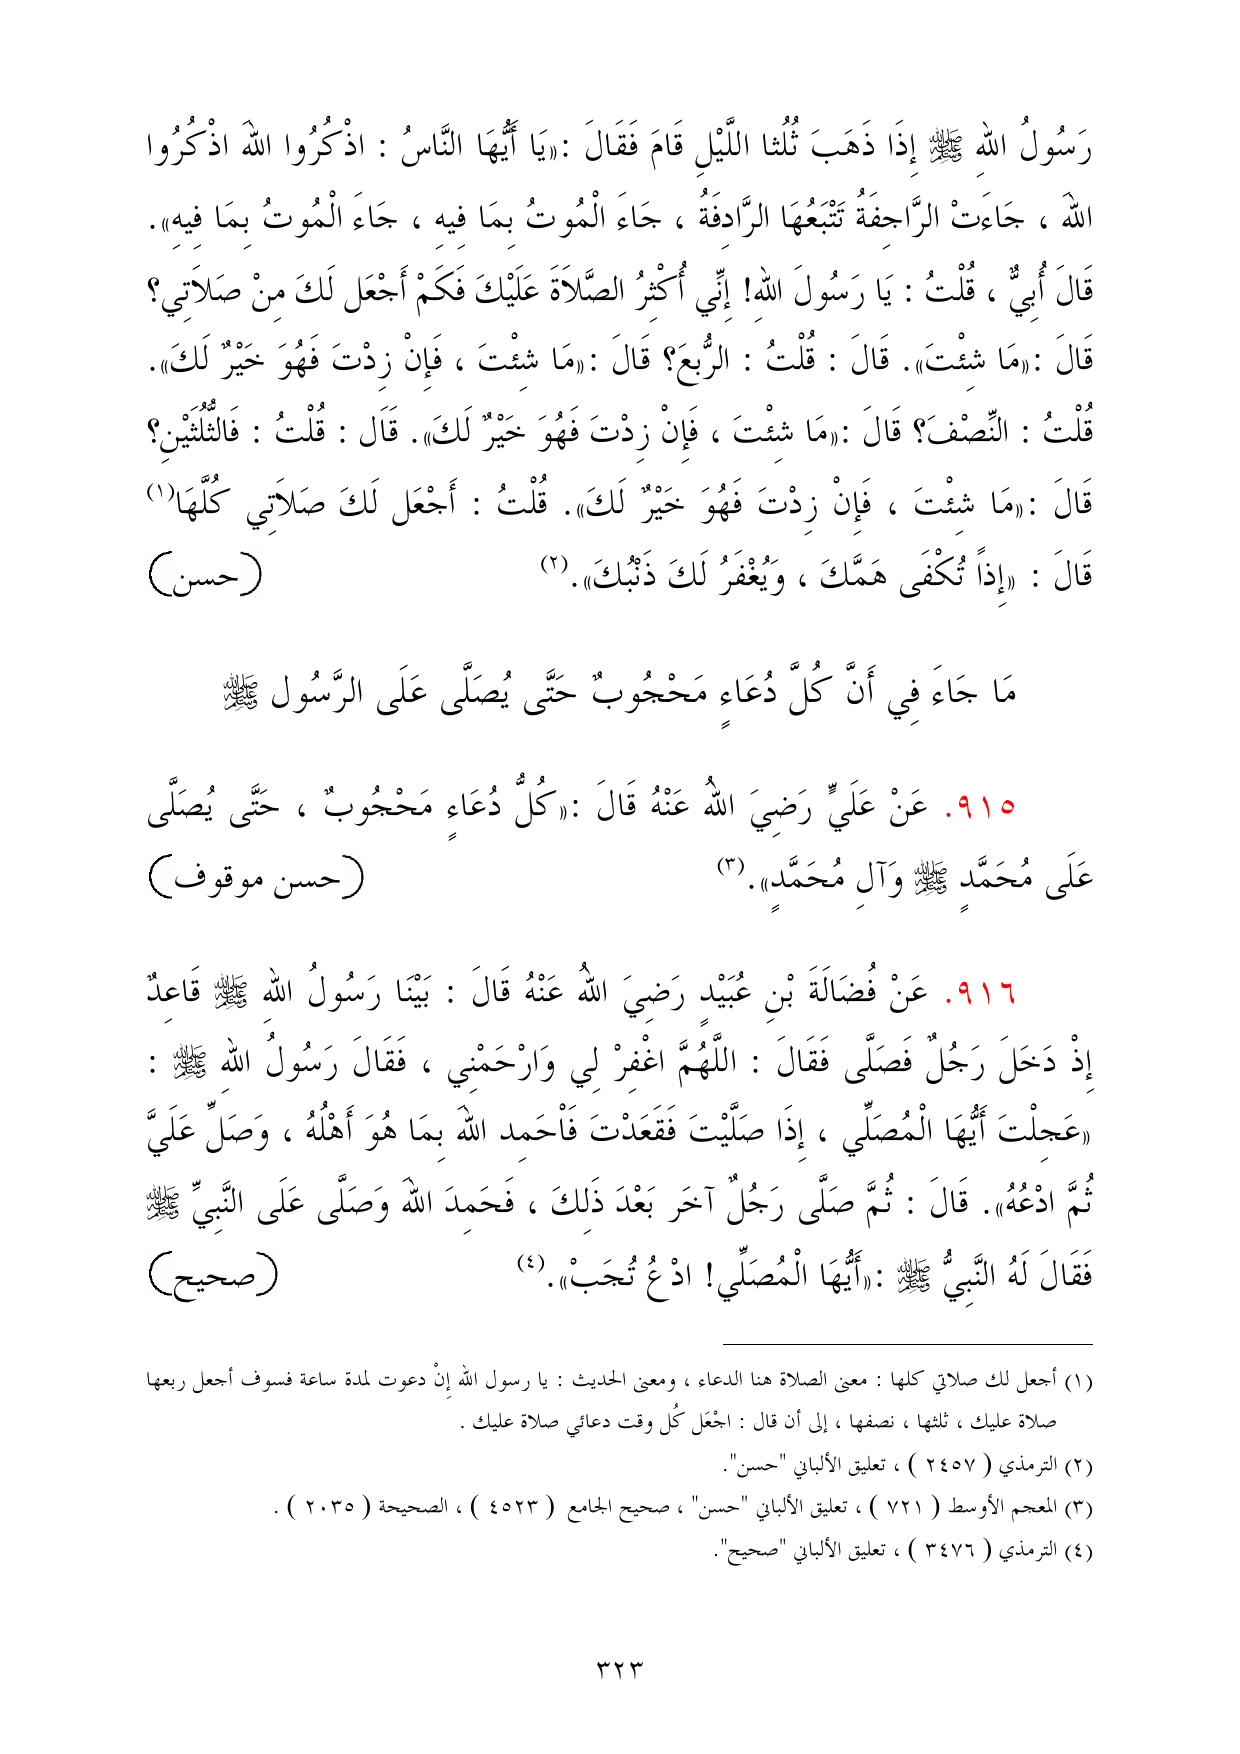 رَسُولُ اللهِ ﷺ إِذَا ذَهَبَ ثُلُثا اللَّيْلِ قَامَ فَقَالَ :«يَا أَيُّهَا النَّاسُ : اذْكُرُوا اللهَ اذْكُرُوا
اللهَ ، جَاءَتْ الرَّاجِفَةُ تَتْبَعُهَا الرَّادِفَةُ ، جَاءَ الْمُوتُ بِمَا فِيهِ ، جَاءَ الْمُوتُ بِمَا فِيهِ».
قَالَ أُبِيٌّ ، قُلْتُ : يَا رَسُولَ اللهِ! إِنِّي أُكْثِرُ الصَّلاَةَ عَلَيْكَ فَكَمْ أَجْعَل لَكَ مِنْ صَلاَتِي؟
قَالَ :«مَا شِئْتَ». قَالَ : قُلْتُ : الرُّبعَ؟ قَالَ :«مَا شِئْتَ ، فَإِنْ زِدْتَ فَهُوَ خَيْرٌ لَكَ».
قُلْتُ : النِّصْفَ؟ قَالَ :«مَا شِئْتَ ، فَإِنْ زِدْتَ فَهُوَ خَيْرٌ لَكَ». قَالَ : قُلْتُ : فَالثُّلُثَيْنِ؟
قَالَ :«مَا شِئْتَ ، فَإِنْ زِدْتَ فَهُوَ خَيْرٌ لَكَ». قُلْتُ : أَجْعَل لَكَ صَلاَتِي كُلَّهَا(١)
قَالَ : «إِذاً تُكْفَى هَمَّكَ ، وَيُغْفَرُ لَكَ ذَنْبُكَ».(٢) (حسن)
مَا جَاءَ فِي أَنَّ كُلَّ دُعَاءٍ مَحْجُوبٌ حَتَّى يُصَلَّى عَلَى الرَّسُول ﷺ
٩١٥. عَنْ عَلَيٍّ رَضِيَ اللهُ عَنْهُ قَالَ :«كُلُّ دُعَاءٍ مَحْجُوبٌ ، حَتَّى يُصَلَّى
عَلَى مُحَمَّدٍ ﷺ وَآلِ مُحَمَّدٍ».(٣) (حسن موقوف)
٩١٦. عَنْ فُضَالَةَ بْنِ عُبَيْدٍ رَضِيَ اللهُ عَنْهُ قَالَ : بَيْنَا رَسُولُ اللهِ ﷺ قَاعِدٌ
إِذْ دَخَلَ رَجُلٌ فَصَلَّى فَقَالَ : اللَّهُمَّ اغْفِرْ لِي وَارْحَمْنِي ، فَقَالَ رَسُولُ اللهِ ﷺ :
«عَجِلْتَ أَيُّهَا الْمُصَلِّي ، إِذَا صَلَّيْتَ فَقَعَدْتَ فَاْحَمِد اللهَ بِمَا هُوَ أَهْلُهُ ، وَصَلِّ عَلَيَّ
ثُمَّ ادْعُهُ». قَالَ : ثُمَّ صَلَّى رَجُلٌ آخَر بَعْدَ ذَلِكَ ، فَحَمِدَ اللهَ وَصَلَّى عَلَى النَّبِيِّ ﷺ
فَقَالَ لَهُ النَّبِيُّ ﷺ :«أَيُّهَا الْمُصَلِّي! ادْعُ تُجَبْ».(٤) (صحيح)
(١) أجعل لك صلاتي كلها : معنى الصلاة هنا الدعاء ، ومعنى الحديث : يا رسول الله إِنْ دعوت لمدة ساعة فسوف أجعل ربعها
صلاة عليك ، ثلثها ، نصفها ، إلى أن قال : اجْعَل كُل وقت دعائي صلاة عليك .
(٢) الترمذي ( ٢٤٥٧ ) ، تعليق الألباني "حسن".
(٣) المعجم الأوسط ( ٧٢١ ) ، تعليق الألباني "حسن" ، صحيح الجامع ( ٤٥٢٣ ) ، الصحيحة ( ٢٠٣٥ ) .
(٤) الترمذي ( ٣٤٧٦ ) ، تعليق الألباني "صحيح".
٣٢٣